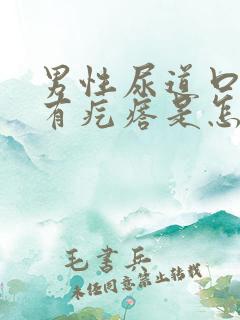 男性尿道口
有疙瘩是怎
毛书兵
未经同意禁止转载